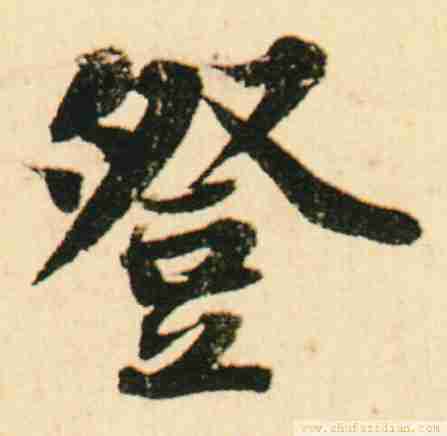 登
www.shufazidian.com